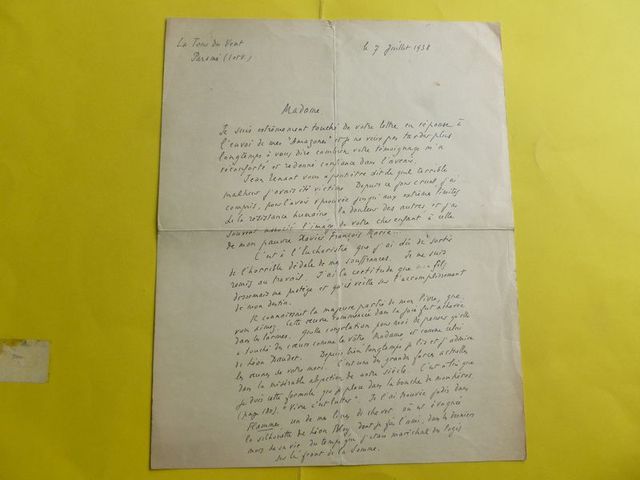 La Tour du Vent
Paramé (I.et V.)
le 7 Juillet 1938
Madame
Je suis extrêmement touché de votre lettre en réponse à
l'envoi de mes "Amazones" et je ne veux pas tarder plus
longtemps à vous dire combien votre témoignage m'a
réconforté et redonné confiance dans l'avenir.
Jean vous a peut-être dit de quel terrible
malheur j'avais été victime. Depuis ce jour cruel j'ai
compris, pour l'avoir éprouvée jusqu'aux extrêmes limites
de la résistance humaine, la douleur des autres et j'ai
souvent l'image de votre cher enfant à celle
de mon pauvre Xavier François Marie...
C'est à l'Eucharistie que j'ai dû de sortir
de l'horrible dédale de mes souffrances. Je me suis
remis au travail. J'ai la certitude que mon fils
désormais me protège et qu'il veille sur l'accomplissement
de mon destin.
Il connaissait la majeure partie de mon livre, que
vous aimez. Cette œuvre commencée dans la joie fut achevée
dans les larmes. Quelle consolation pour moi de penser qu'elle
a touché des cœurs comme le vôtre Madame et comme celui
de Léon Daudet. Depuis bien longtemps je lis et j'admire
les œuvres de votre mari. C'est une des grandes forces actuelles
dans la misérable abjection de notre siècle. C'est à lui que
je dois cette formule que je place dans la bouche de mon héros
(page 180). "Vivre c'est lutter". Je l'ai trouvée jadis dans
Flamme, un de mes livres de chevet, où est évoquée
la silhouette de Léon Bloy, dont je fus l'ami, dans les derniers
mois de sa vie du temps que j'étais maréchal des logis
sur le front de la Somme.